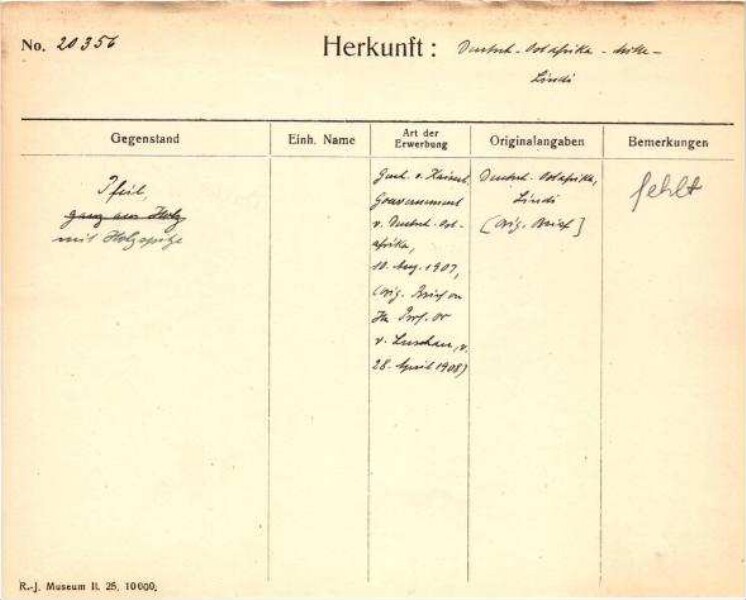 No. 20356
Herkunft: Deutsch-Ostafrika - Mitte -
Lindi
Gegenstand
Einh. Name
Art der
Erwerbung
Originalangaben
Bemerkungen
Pfeil,
ganz aus Holz
mit Holzspitze
Gesch. v. Kaiserl.
Gouvernement
v. Deutsch-Ost-
afrika,
10. Aug. 1907,
(Orig. Brief an
Hr. Prof. Dr
v. Luschan, v.
28. April 1908)
Deutsch-Ostafrika,
Lindi
[Orig. Brief]
fehlt
R.-J. Museum II. 25. 10000.